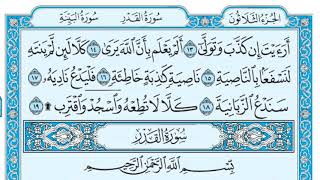 الجزء الثلاثون سورة القدر سورة البينة
أَرَءَيْتَ إِن كَذَّبَ وَتَوَلَّىٰٓ ١٣ أَلَمْ يَعْلَم بِأَنَّ ٱللَّهَ يَرَىٰ ١٤ كَلَّا لَئِن لَّمْ يَنتَهِ
لَنَسْفَعًۢا بِٱلنَّاصِيَةِ ١٥ نَاصِيَةٍ كَٰذِبَةٍ خَاطِئَةٍ ١٦ فَلْيَدْعُ نَادِيَهُۥ ١٧
سَنَدْعُ ٱلزَّبَانِيَةَ ١٨ كَلَّا لَا تُطِعْهُ وَٱسْجُدْ وَٱقْتَرِب ۩ ١٩
سورة القدر
بِسْمِ ٱللَّهِ ٱلرَّحْمَٰنِ ٱلرَّحِيمِ